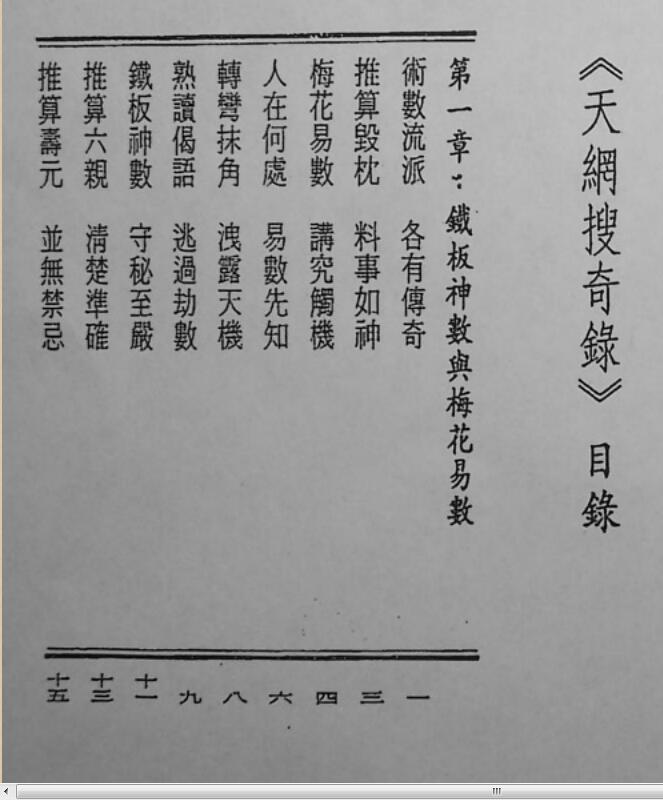 《天網搜奇錄》目錄
第一章：鐵板神數與梅花易數
術數流派　各有傳奇　一
推算毀枕　料事如神　三
梅花易數　講究觸機　四
人在何處　易數先知　六
轉彎抹角　洩露天機　八
熟讀偈語　逃過劫數　九
鐵板神數　守秘至嚴　十一
推算六親　清楚準確　十三
推算壽元　並無禁忌　十五